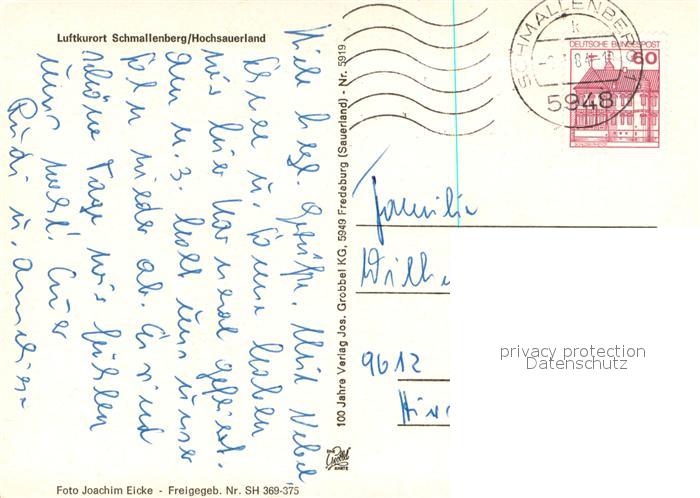 Luftkurort Schmallenberg/Hochsauerland
Viele herzl. Grüße. Mit Nebel
Schnee u. Sonne haben
wir hier Karneval gefeiert.
Am 4.3. holt uns unser
Sohn wieder ab. Es sind
schöne Tage wir fühlen
uns wohl! Eure
Rudi u.
100 Jahre Verlag Jos. Grobbel KG, 5949 Fredeburg (Sauerland) - Nr. 5919
SCHMALLENBERG 1
k
84
5948
DEUTSCHE BUNDESPOST
60
Familie
9612
privacy protection
Datenschutz
Foto Joachim Eicke - Freigegeb. Nr. SH 369-375